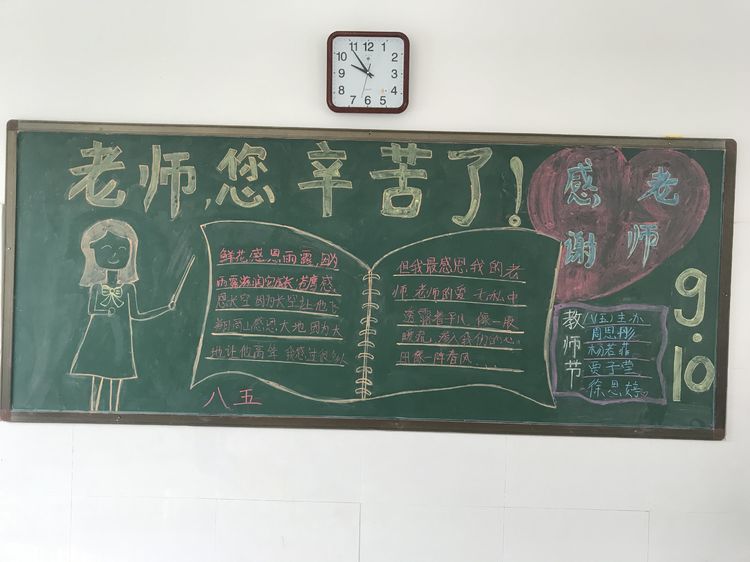 12
1
2
3
4
5
6
7
8
9
10
11
老师,您辛苦了!
感 老
谢 师
鲜花感恩雨露,因为
雨露滋润它成长,苍鹰感
恩长空 因为长空让他飞
高山感恩大地 因为大
地让他高耸 我感
但我最感恩我的老
师 老师的爱 无私中
透露着平凡 像一股
暖流,渗入我们的心
田像一阵春风
八五
教师节
八五主办
周思彤
杨若菲
贾子萱
徐思婷
9.10